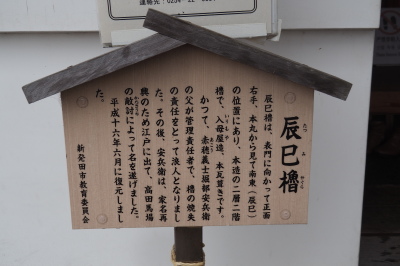 連絡先:0254-22-
辰巳櫓
たつみやぐら
辰巳櫓は、表門に向かって正面
右手、本丸から見て南東(辰巳)
の位置にあり、木造の二層二階
櫓で、入母屋造、本瓦葺きです。
かつて、赤穂義士堀部安兵衛
の父が管理責任者で、櫓の焼失
の責任をとって浪人となりまし
た。その後、安兵衛は、家名再
興のため江戸に出て、高田馬場
の敵討によって名を遂げました。
平成十六年六月に復元しまし
た。
新発田市教育委員会